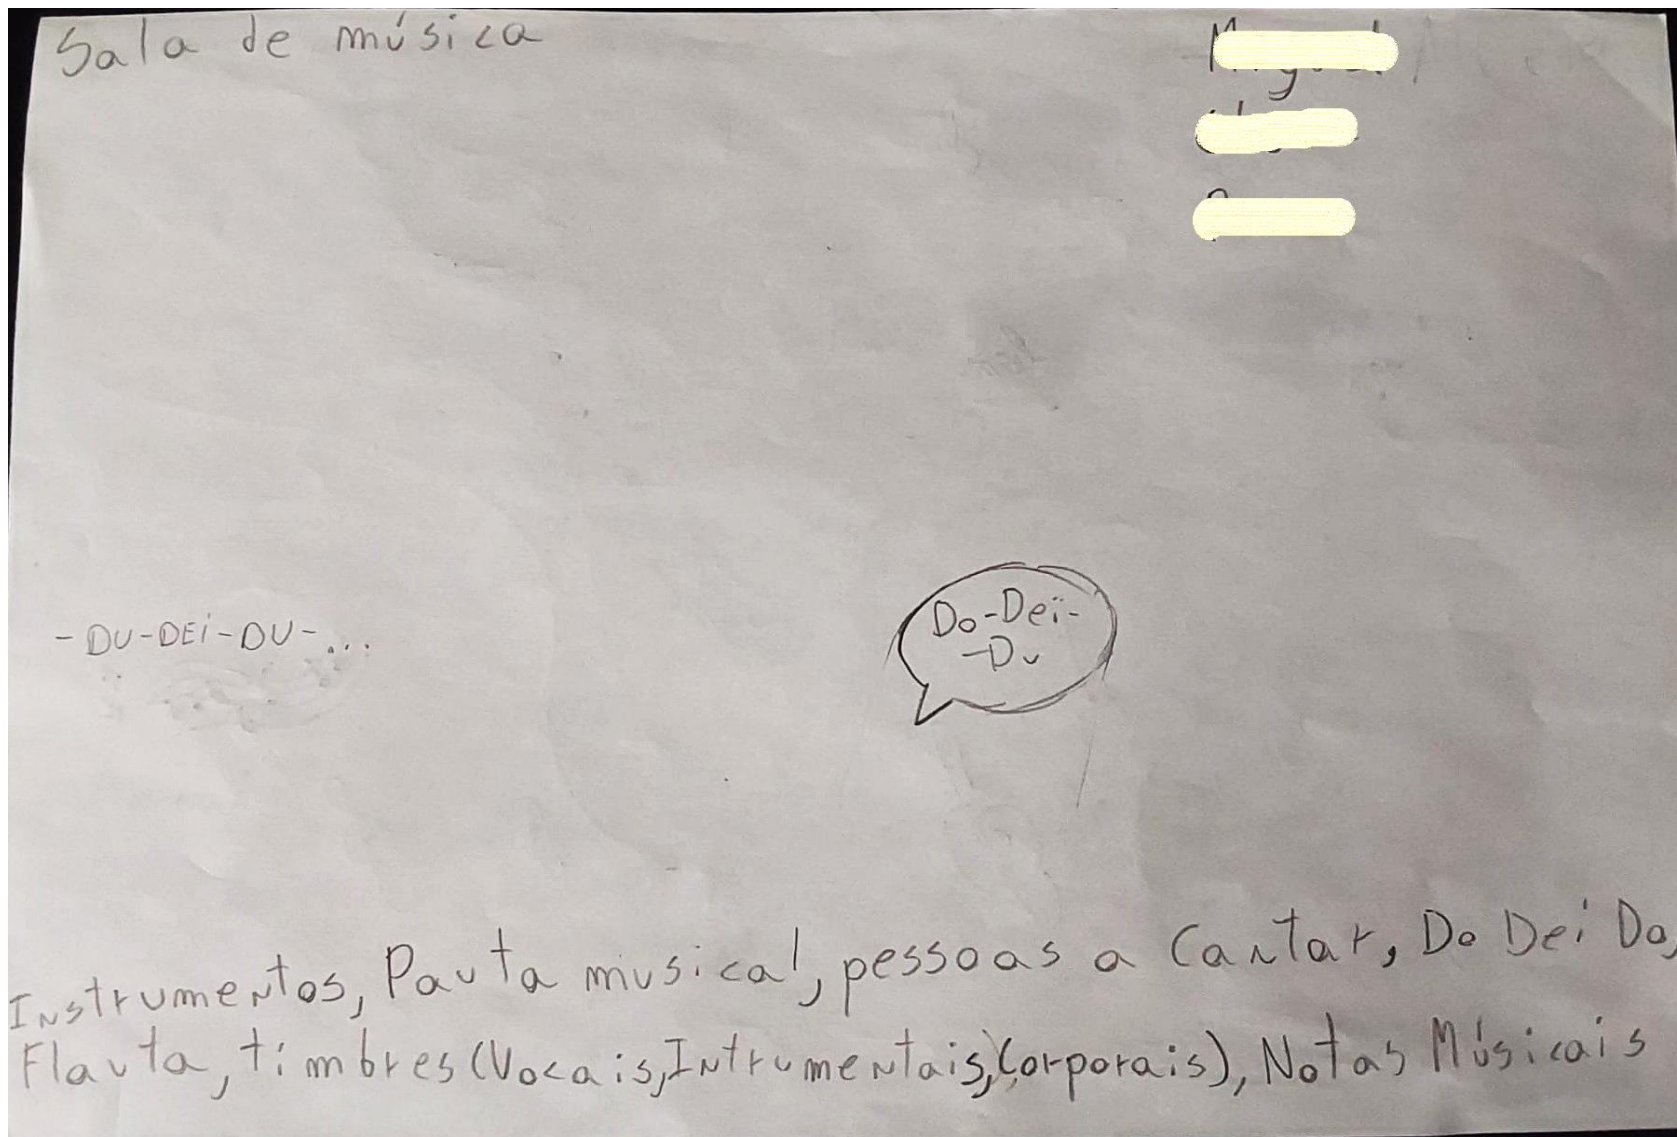 Sala de música
-DU-DEi-DU-...
Do-Deï-
-Du
Instrumentos, Pauta musical, pessoas a Cantar, Do Dei Do,
Flauta, timbres (Vocais, Intrumentais, Corporais), Notas Músicais